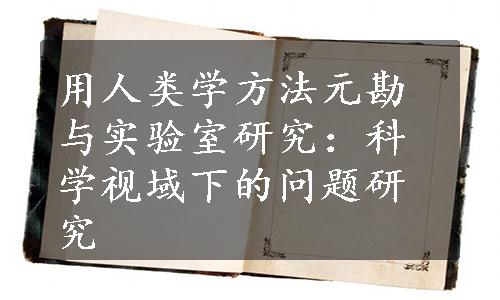 用人类学方法元勘
与实验室研究：科
学视域下的问题研
究